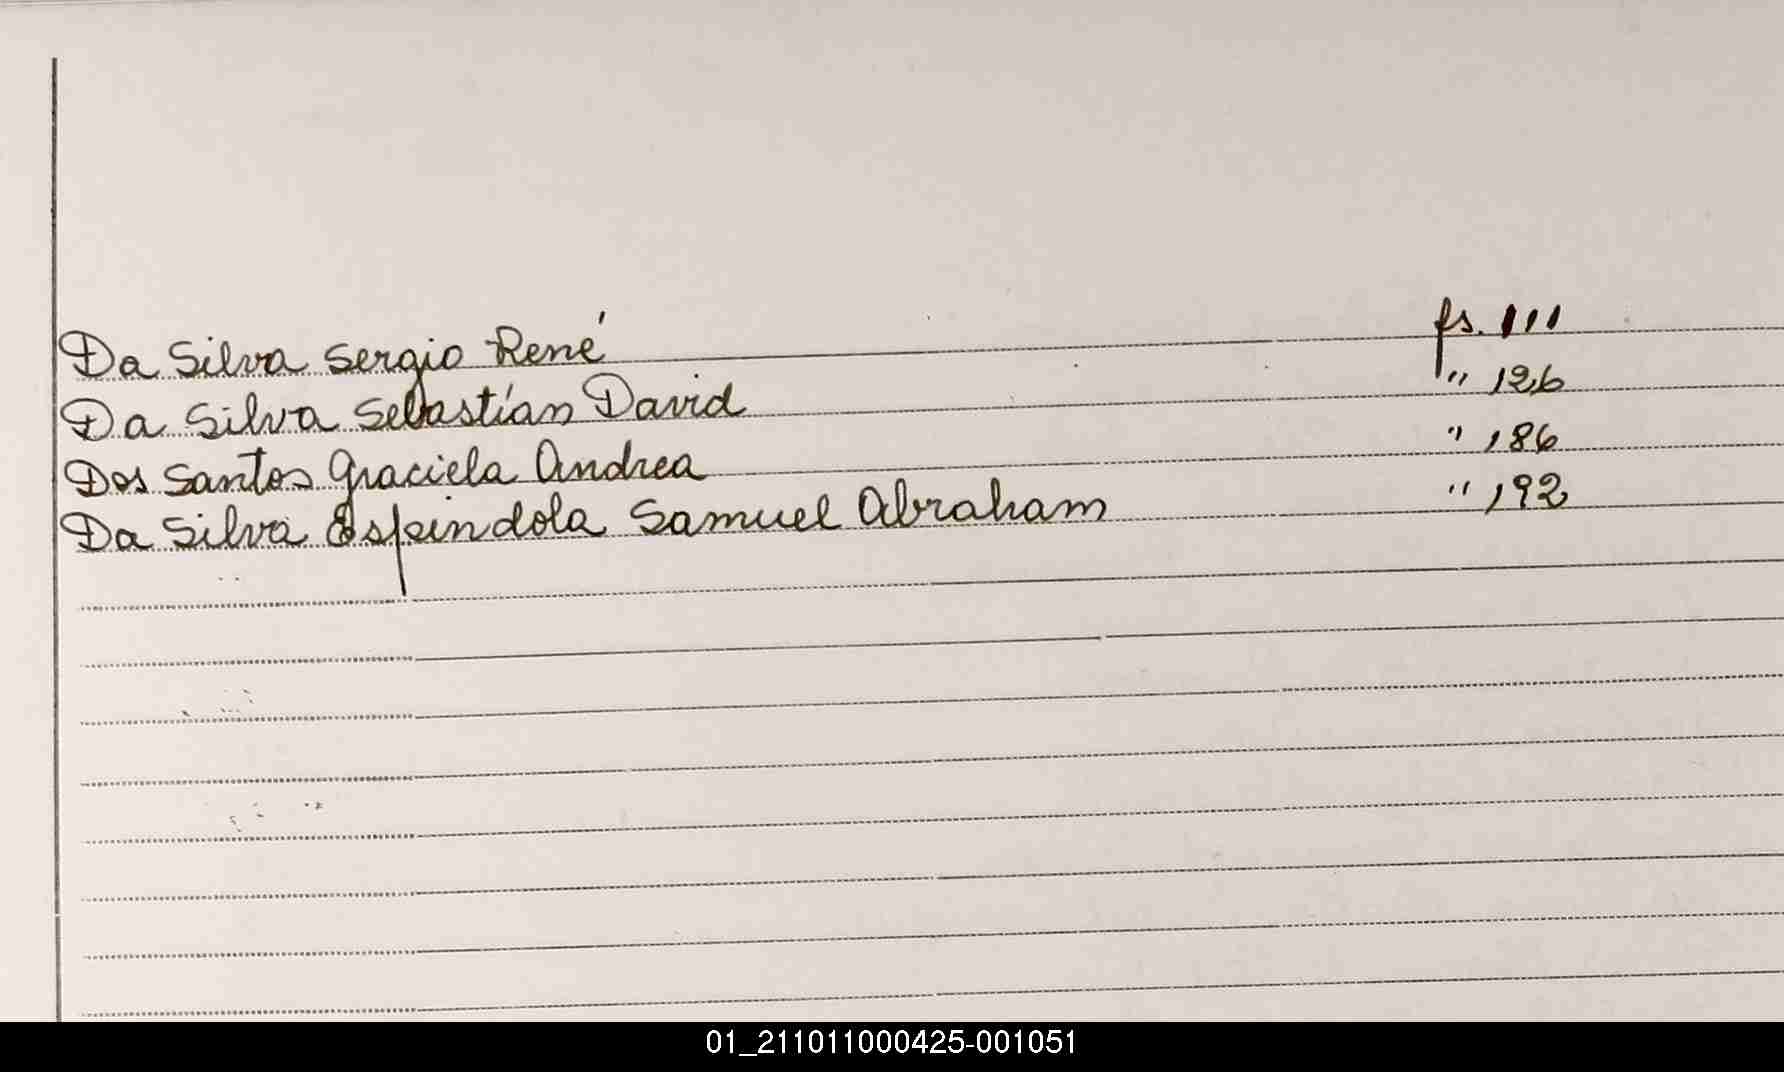 Da Silva Sergio René fs. 111
Da Silva Sebastían David " 126
Dos Santos Graciela Andrea " 186
Da Silva Espindola Samuel Abraham " 192
01_211011000425-001051